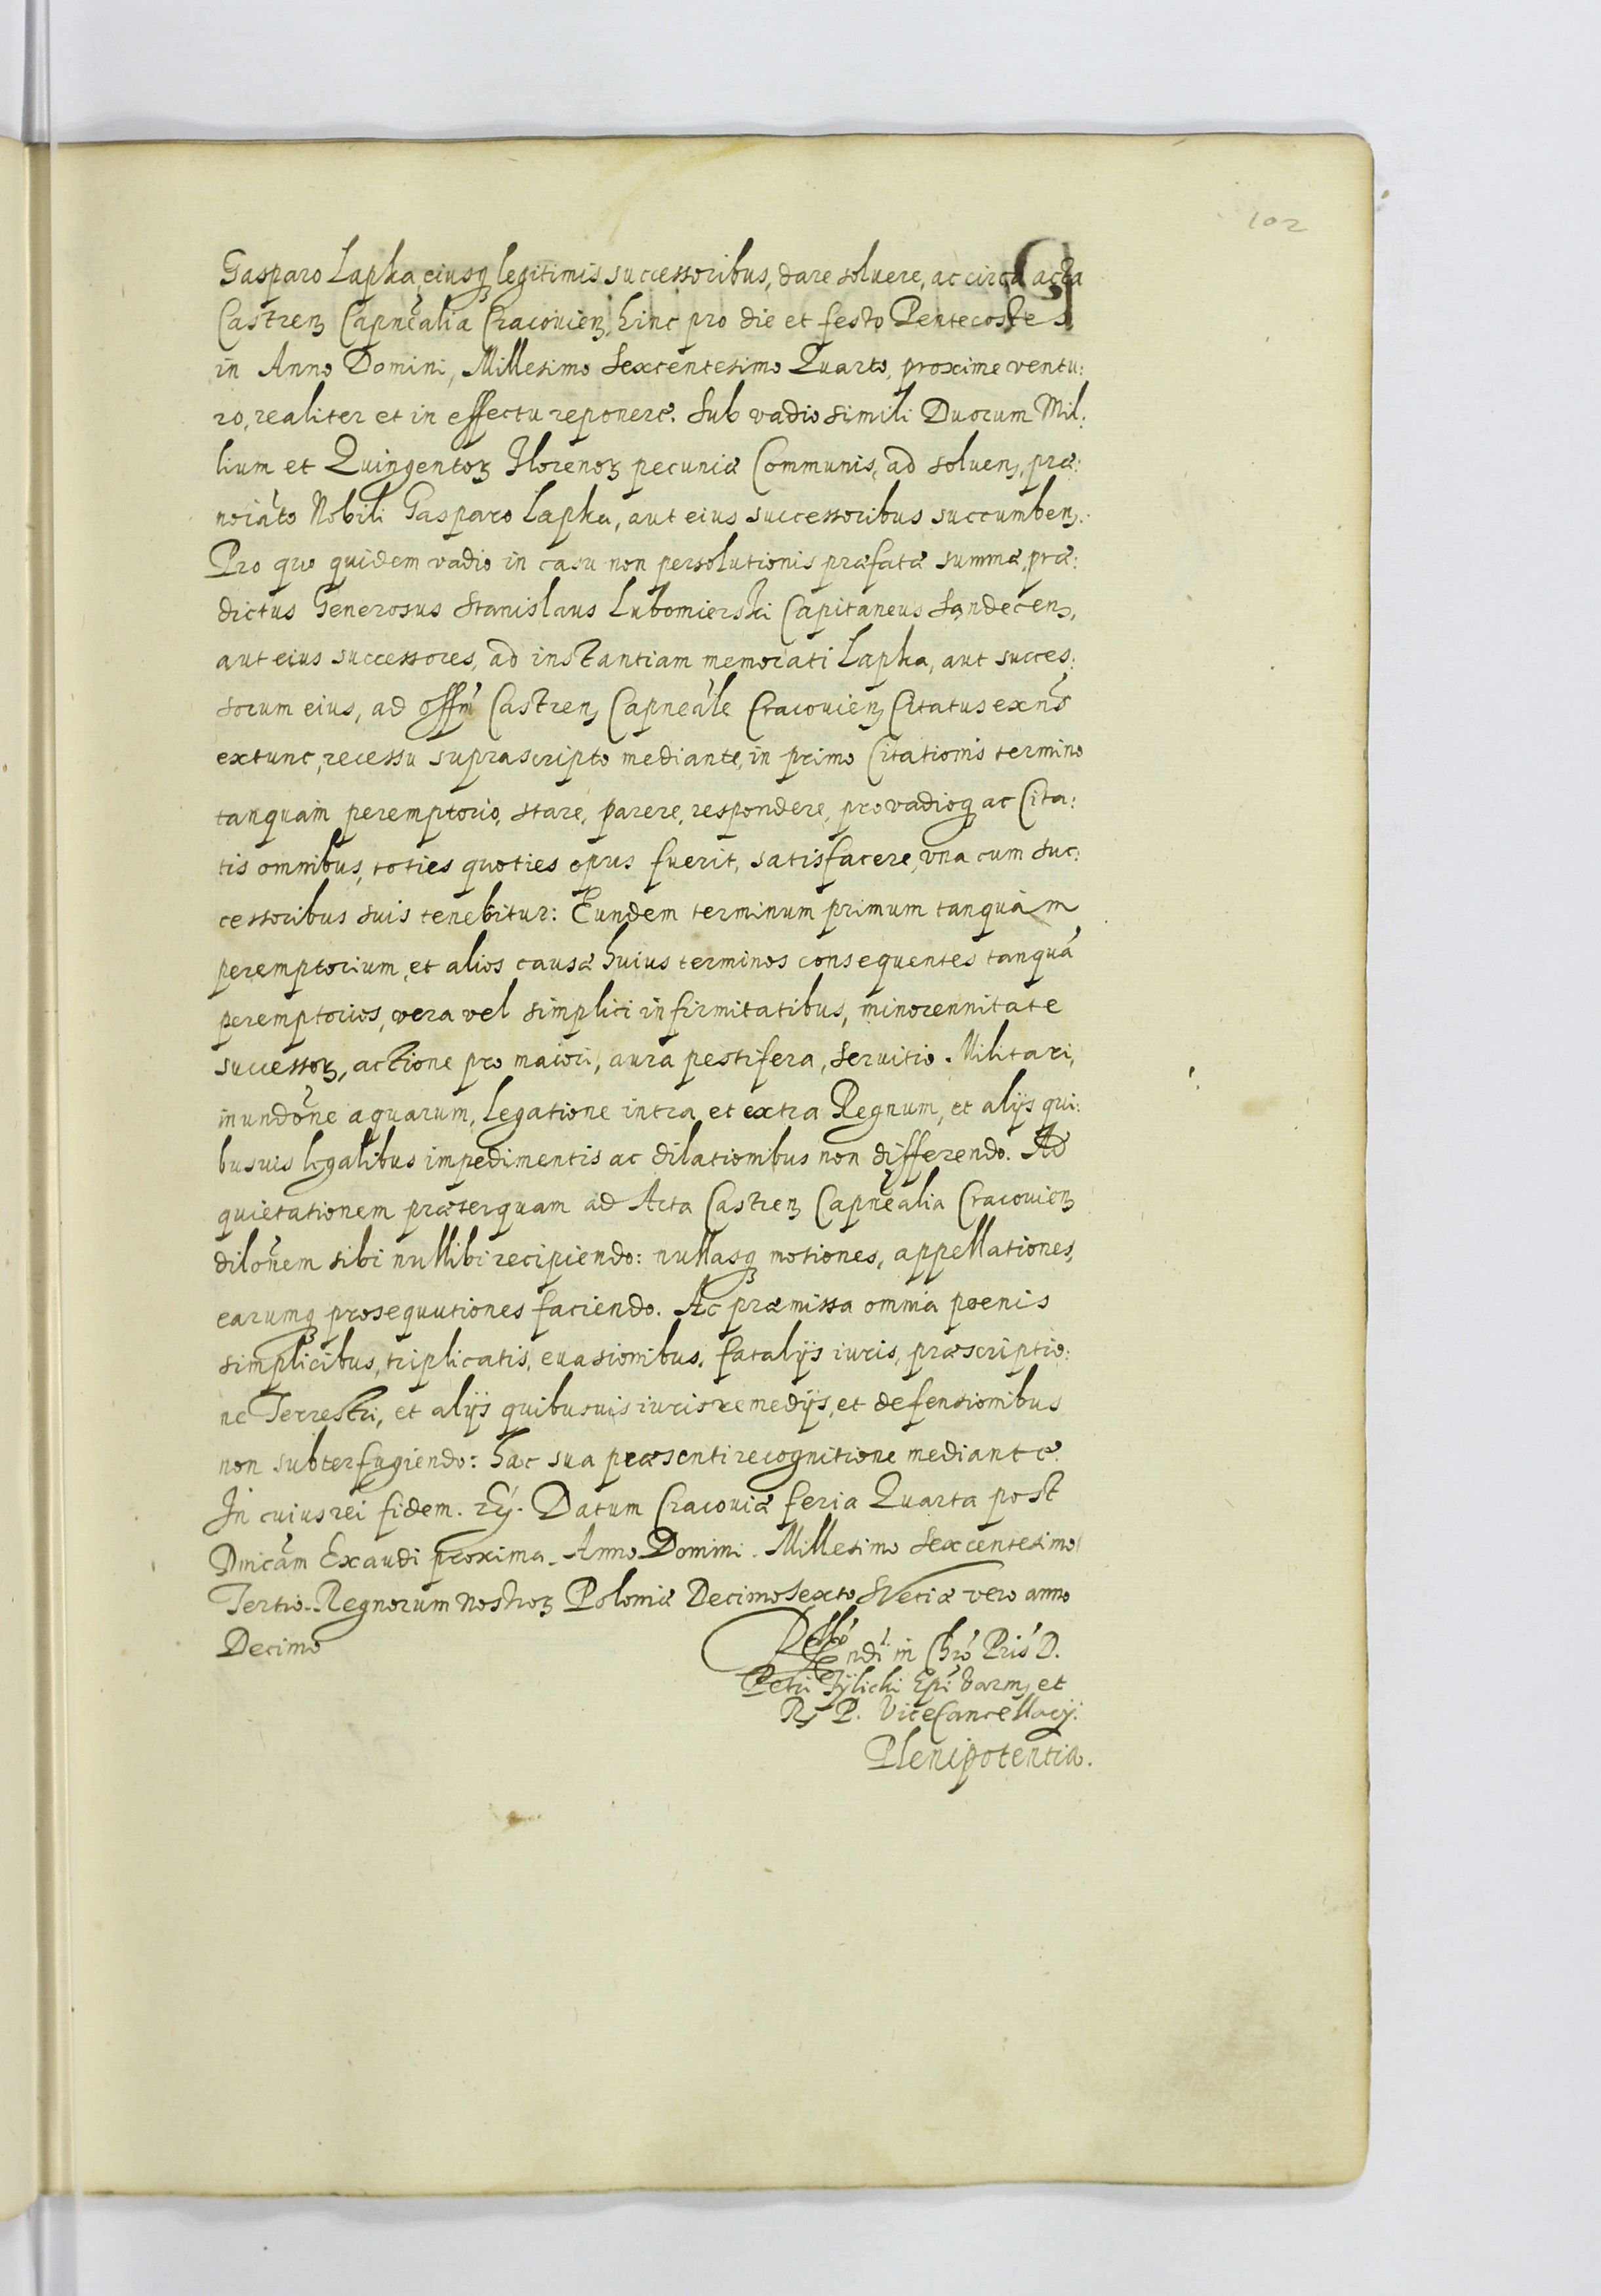 102
Gasparo Lapka, eiusqꝫ legitimis successoribus, dare soluere, ac circa acta
Castrenꝫ Capnēalia Cracouienꝫ, hinc pro die et festo Pentecostes
in Anno Domini, Millesimo Sexcentesimo Quarto, proxime ventu:
ro, realiter et in effectu reponere. Sub vadio simili Duorum Mil:
lium et Quingentoꝝ Florenoꝝ pecuniæ Communis, ad soluenꝫ, præ:
noiāto Nobili Gasparo Lapka, aut eius successoribus succumbenꝫ.
Pro quo quidem vadio in casu non persolutionis præfatæ summæ, præ:
dictus Generosus Stanislaus Lubomierski Capitaneus Sandecenꝫ,
aut eius successores, ad instantiam memorati Lapka, aut succes:
sorum eius, ad offm̄ Castrenꝫ Capneāle Cracouienꝫ Citatus exn̄s
extunc, recessu suprascripto mediante, in primo Citationis termino
tanquam peremptorio, stare, parere, respondere, pro vadioqꝫ ac Cita:
tis omnibus, toties quoties opus fuerit, satisfacere, vna cum suc:
cessoribus suis tenebitur: Eundem terminum primum tanquàm
peremptorium, et alios causæ huius terminos consequentes tanquā
peremptorios, vera vel simplici infirmitatibus, minorennitate
successoꝝ, actione pro maiori, aura pestifera, seruitio Militari,
inundōne aquarum, legatione intra et extra Regnum, et alijs qui:
busuis legalibus impedimentis ac dilationibus non differendo. Ad
quietationem præterquam ad Acta Castrenꝫ Capnēalia Cracouienꝫ
dilōnem sibi nullibi recipiendo: nullasqꝫ motiones, appellationes,
earumqꝫ prosequutiones faciendo. Ac præmissa omnia poenis
simplicibus, triplicatis, euasionibus, fatalijs iuris, præscriptio:
ne Terrestri, et alijs quibusuis iuris remedijs, et defensionibus
non subterfugiendo: hac sua præsenti recognitione mediante.
In cuius rei fidem. Datum Cracouiæ feria Quarta post
Dnicām Exaudi proxima. Anno Domini. Millesimo Sexcentesimo
Tertio. Regnorum nostroꝝ Poloniæ Decimosexto Sveciæ vero anno
Decimo
ndi in Chrō Pris D.
Petri Tylicki Epi Varmꝫ et
Rꝫ P. ViceCancellarij.
Plenipotentia.